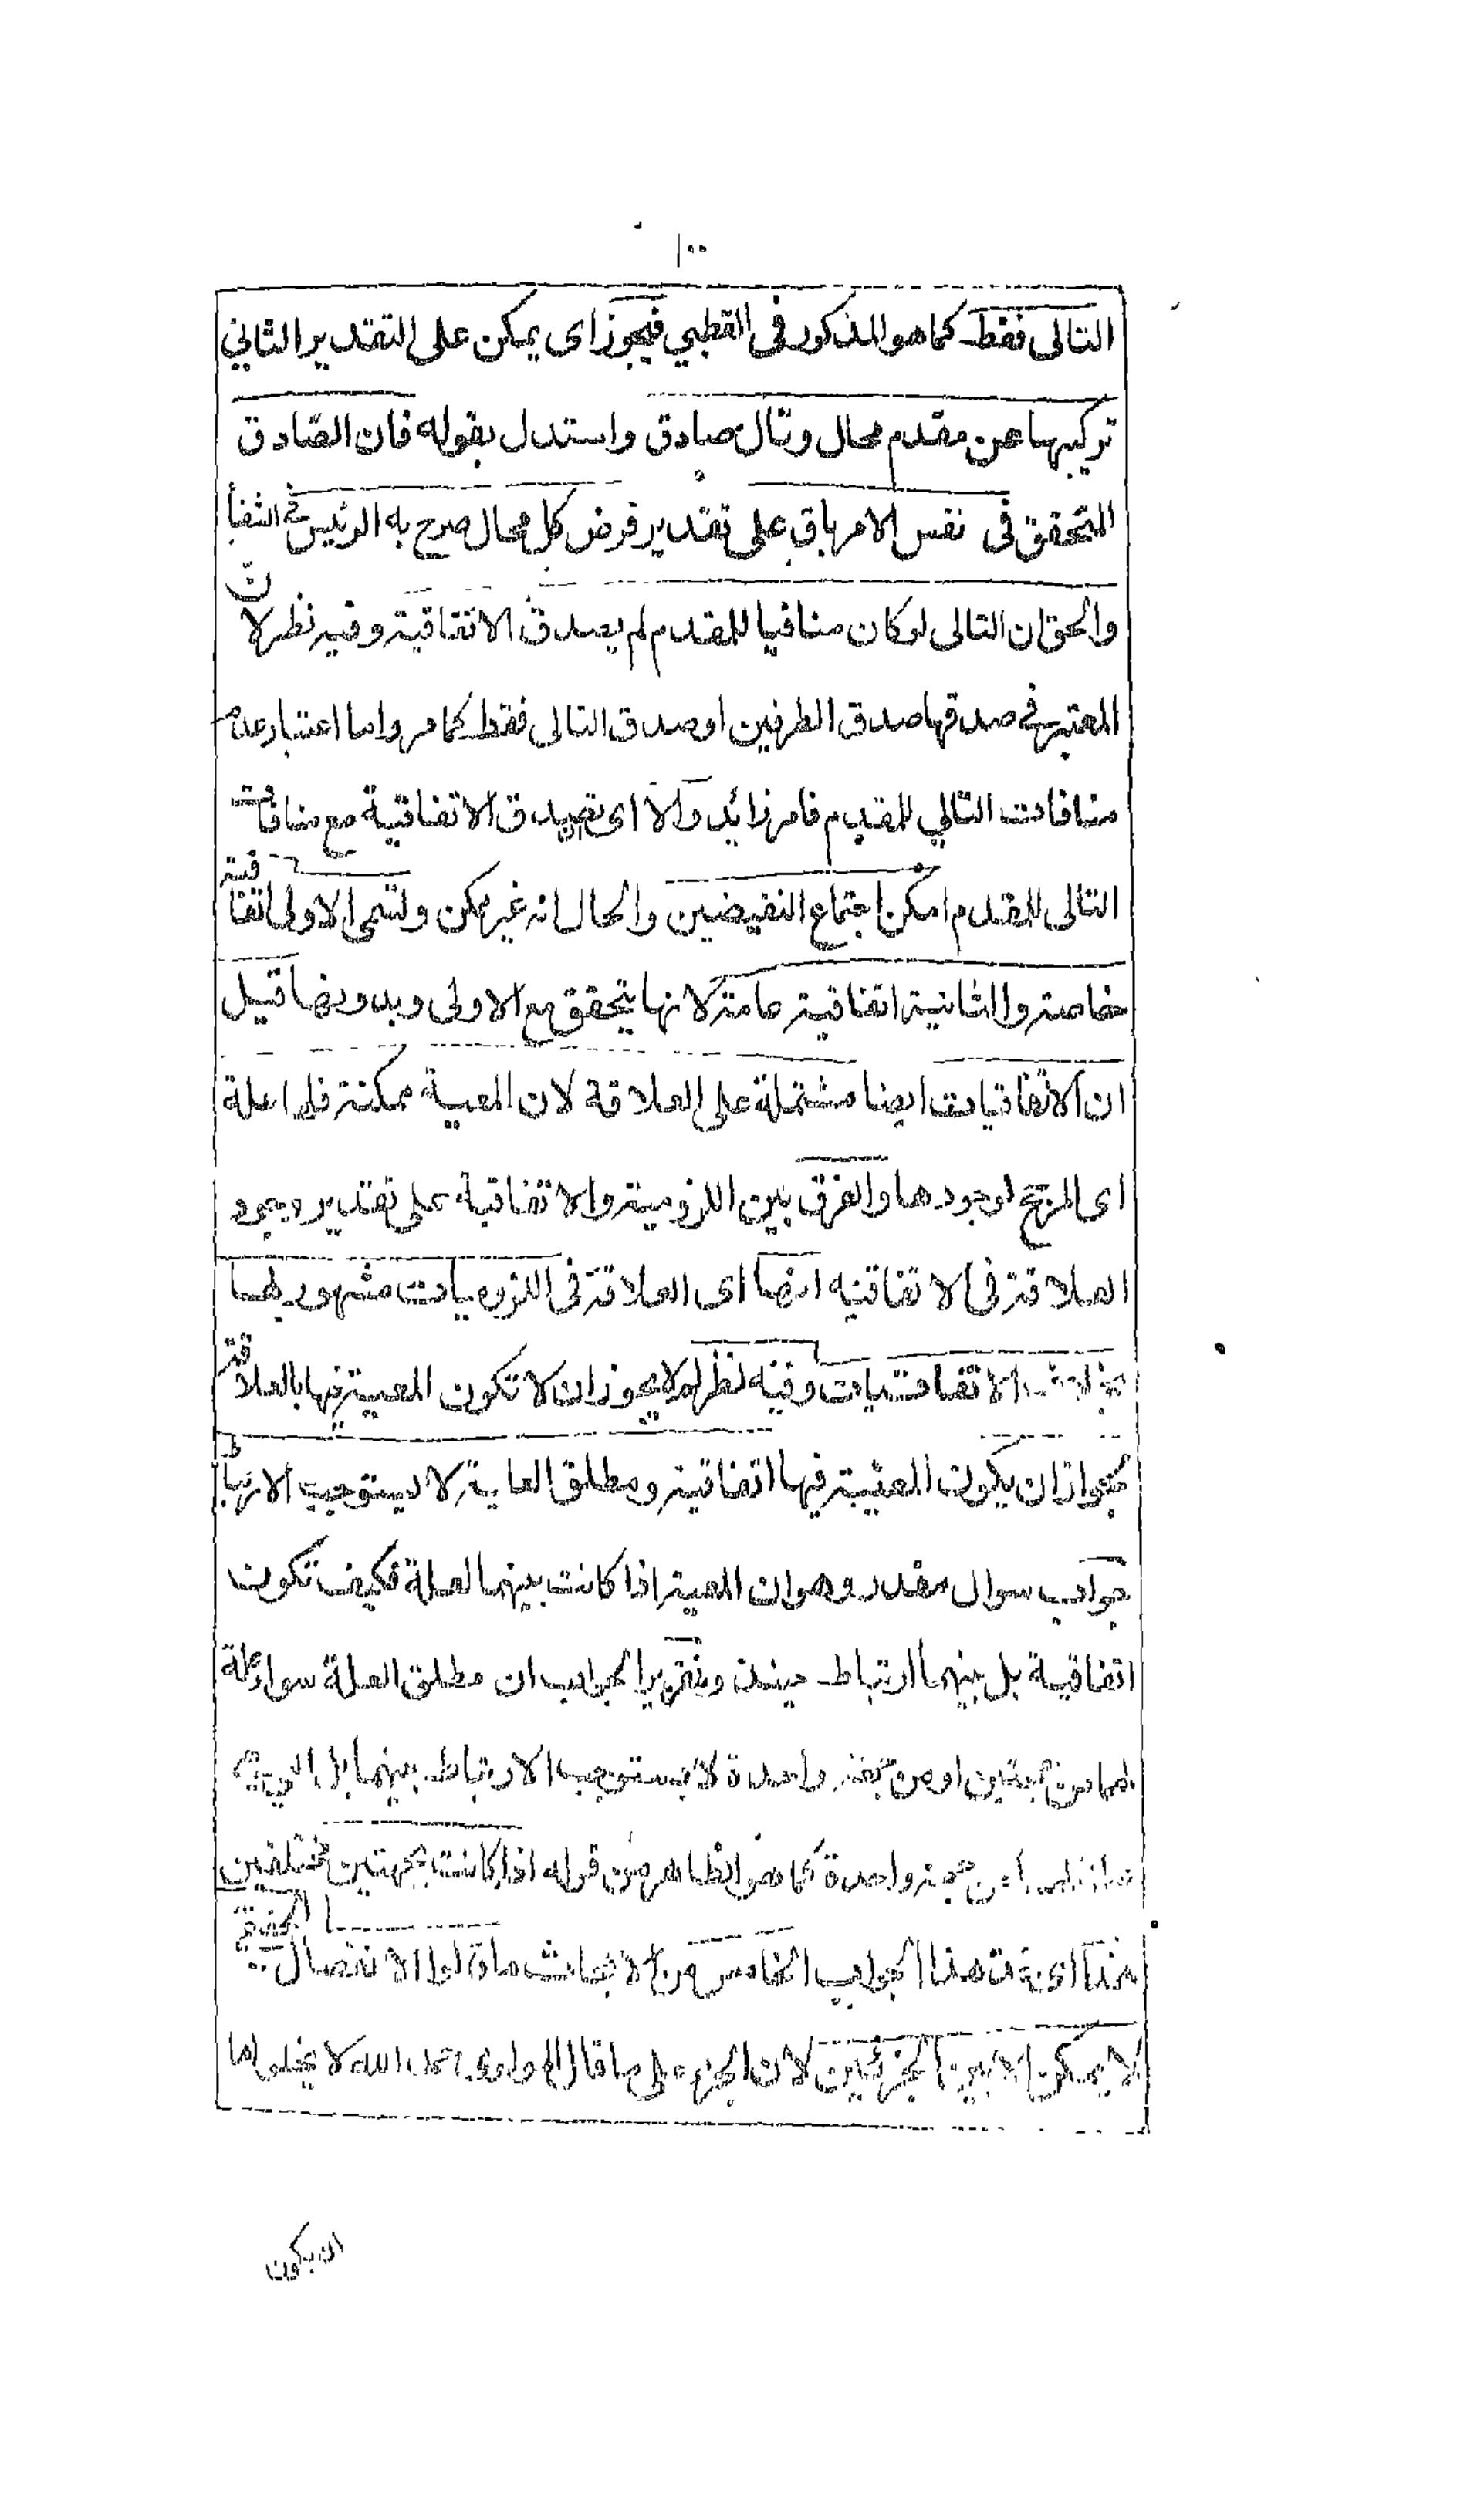 ١٠٠
التالى فقط كما هو المذكور فى القطبي فيجوز اى يمكن على التقدير الثاني
تركيبها عن مقدم محال وتال صادق واستدل بقوله فان الصادق
المتحقق فى نفس الامر باق على تقدير فرض كل محال صرح به الرئيس في الشفأ
والحق ان التالى لو كان منافيا للمقدم لم يصدق الاتفاقية وفيه نظر لان
المعتبر في صدقها صدق الطرفين او صدق التالى فقط كما مر واما اعتبار عدم
منافات التالي للمقدم فامر زائد والا اى تصدق الاتفاقية مع منافات
التالى للمقدم امكن اجتماع النقيضين والحال انه غير ممكن وتسمى الاولى اتفاقية
خاصة والثانية اتفاقية عامة لانها يتحقق مع الاولى وبدونها قيل
ان الاتفاقيات ايضا مشتملة على العلاقة لان المعية ممكنة فلها علة
اى المرجح لوجودها والفرق بين اللزومية والاتفاقية على تقدير وجود
العلاقة فى الاتفاقية ايضا اى العلاقة فى اللزوميات مشهور بها
بخلاف الاتفاقيات وفيه نظر لم لا يجوز ان لا تكون المعية فيها بالعلاقة
بجواز ان يكون المعية فيها اتفاقية ومطلق العلية لا يستوجب الارتباط
جواب سوال مقدر وهو ان المعية اذا كانت بينهما لعلة فكيف تكون
اتفاقية بل بينهما ارتباط حينئذ وتقرير الجواب ان مطلق العلة سواء علة
لهما من جهتين او من جهة واحدة لا يستوجب الارتباط بينهما
من جهة واحدة كما هو الظاهر من قوله اذا كانت بجهتين مختلفين
هذا اى خذ هذا الجواب الخامس من الابحاث ما قالوا الانفصال الحقيقى
لا يمكن الا بين الجزئين لان الجزء على ما قال المولوى حمد الله لا يخلو اما
ان يكون